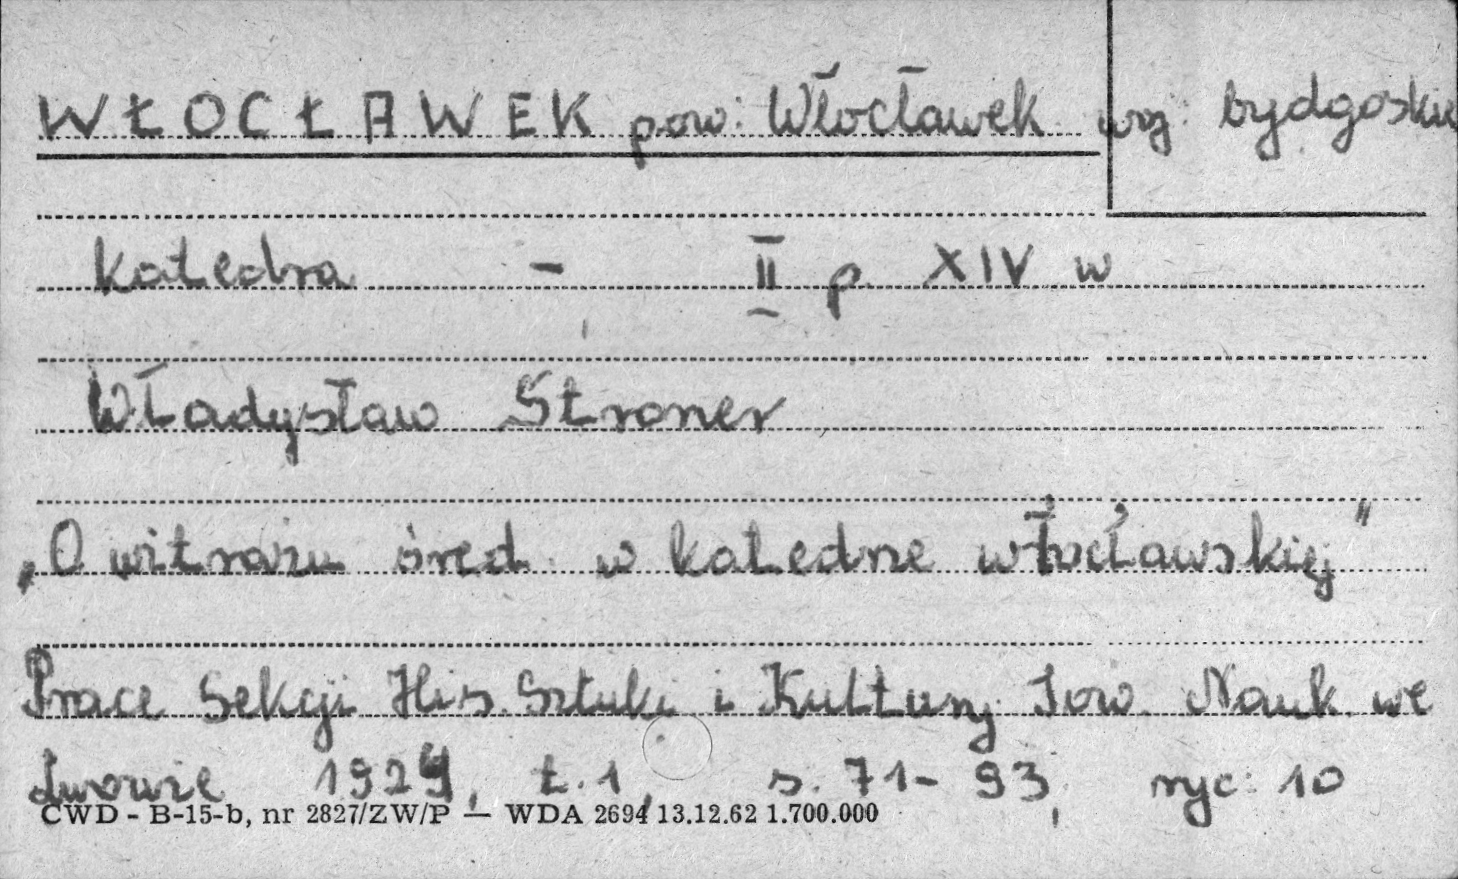 WŁOCŁAWEK pow: Włocławek woj: bydgoskie
Katedra - II p. XIV w
Władysław Stroner
„O witrażu śred. w katedrze włocławskiej"
Prace Sekcji His. Sztuki i Kultury Tow. Nauk. we
Lwowie 1929, t. 1, s. 71-93, ryc: 10
CWD - B-15-b, nr 2827/ZW/P — WDA 2694 13.12.62 1.700.000